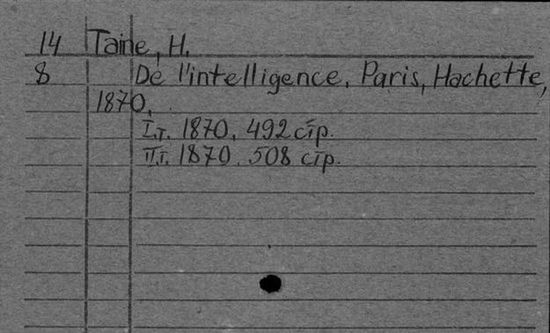 14 Taine, H.
8 De l'intelligence. Paris, Hachette,
1870.
I.т. 1870. 492 стр.
II.т. 1870. 508 стр.